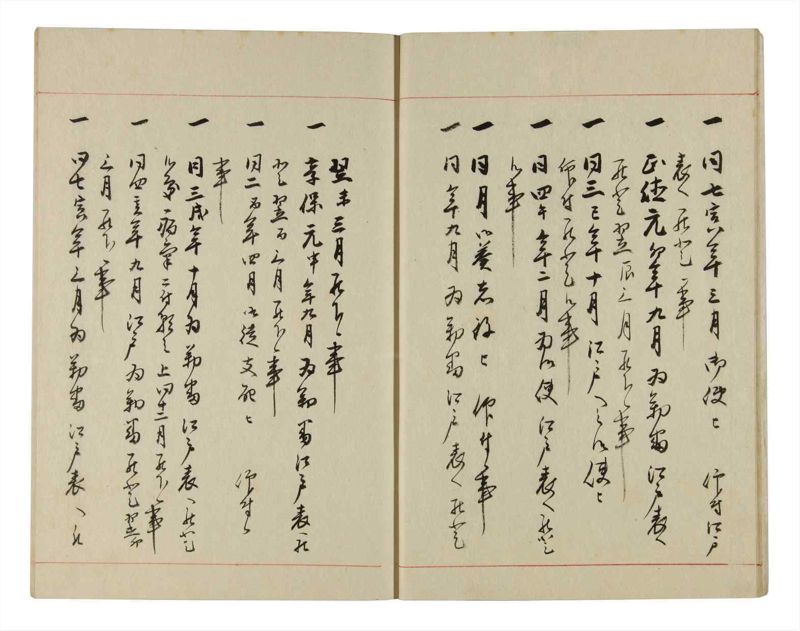 一 同七亥年三月御使者被 仰付江戸
表へ罷登候事
一 正徳元卯年九月為勤番江戸表へ
罷登翌辰三月罷下候事
一 同三巳年十月江戸へ之御使者
仰付罷登候事
一 同四午年二月為御使江戸表へ罷登
候事
一 同月 仰付候事
一 同年九月為勤番江戸表へ罷登
翌未三月罷下候事
一 享保元申年九月為勤番江戸表へ罷
登翌酉三月罷下候事
一 同二酉年四月御徒支配被 仰付候
事
一 同三戌年十月為勤番江戸表へ罷登
候処病気ニ付 同十二月罷下候事
一 同四亥年九月江戸為勤番罷登翌子
三月罷下候事
一 同七寅年三月為勤番江戸表へ罷